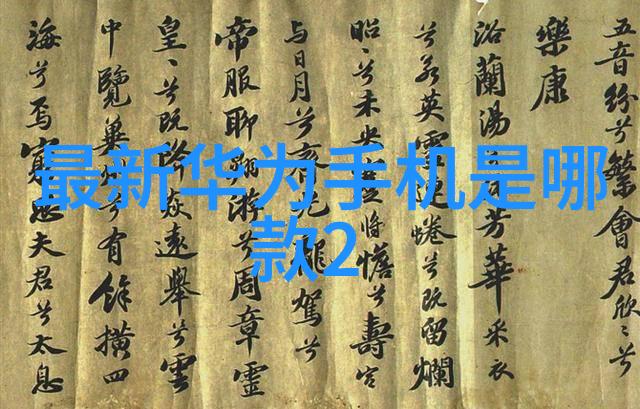 最新华为手机是哪
款2
五音紛兮繁會君欣〻兮
樂康
浴蘭湯兮芳華采衣
兮若英靈連蜷兮既留爛
昭〻兮未央將憺兮壽宮
与日月兮齊光龍駕兮
帝服聊翱游兮周章靈
皇〻兮既降猋遠舉兮雲
中覽冀州兮有餘橫四
海兮焉窮思夫君兮太息